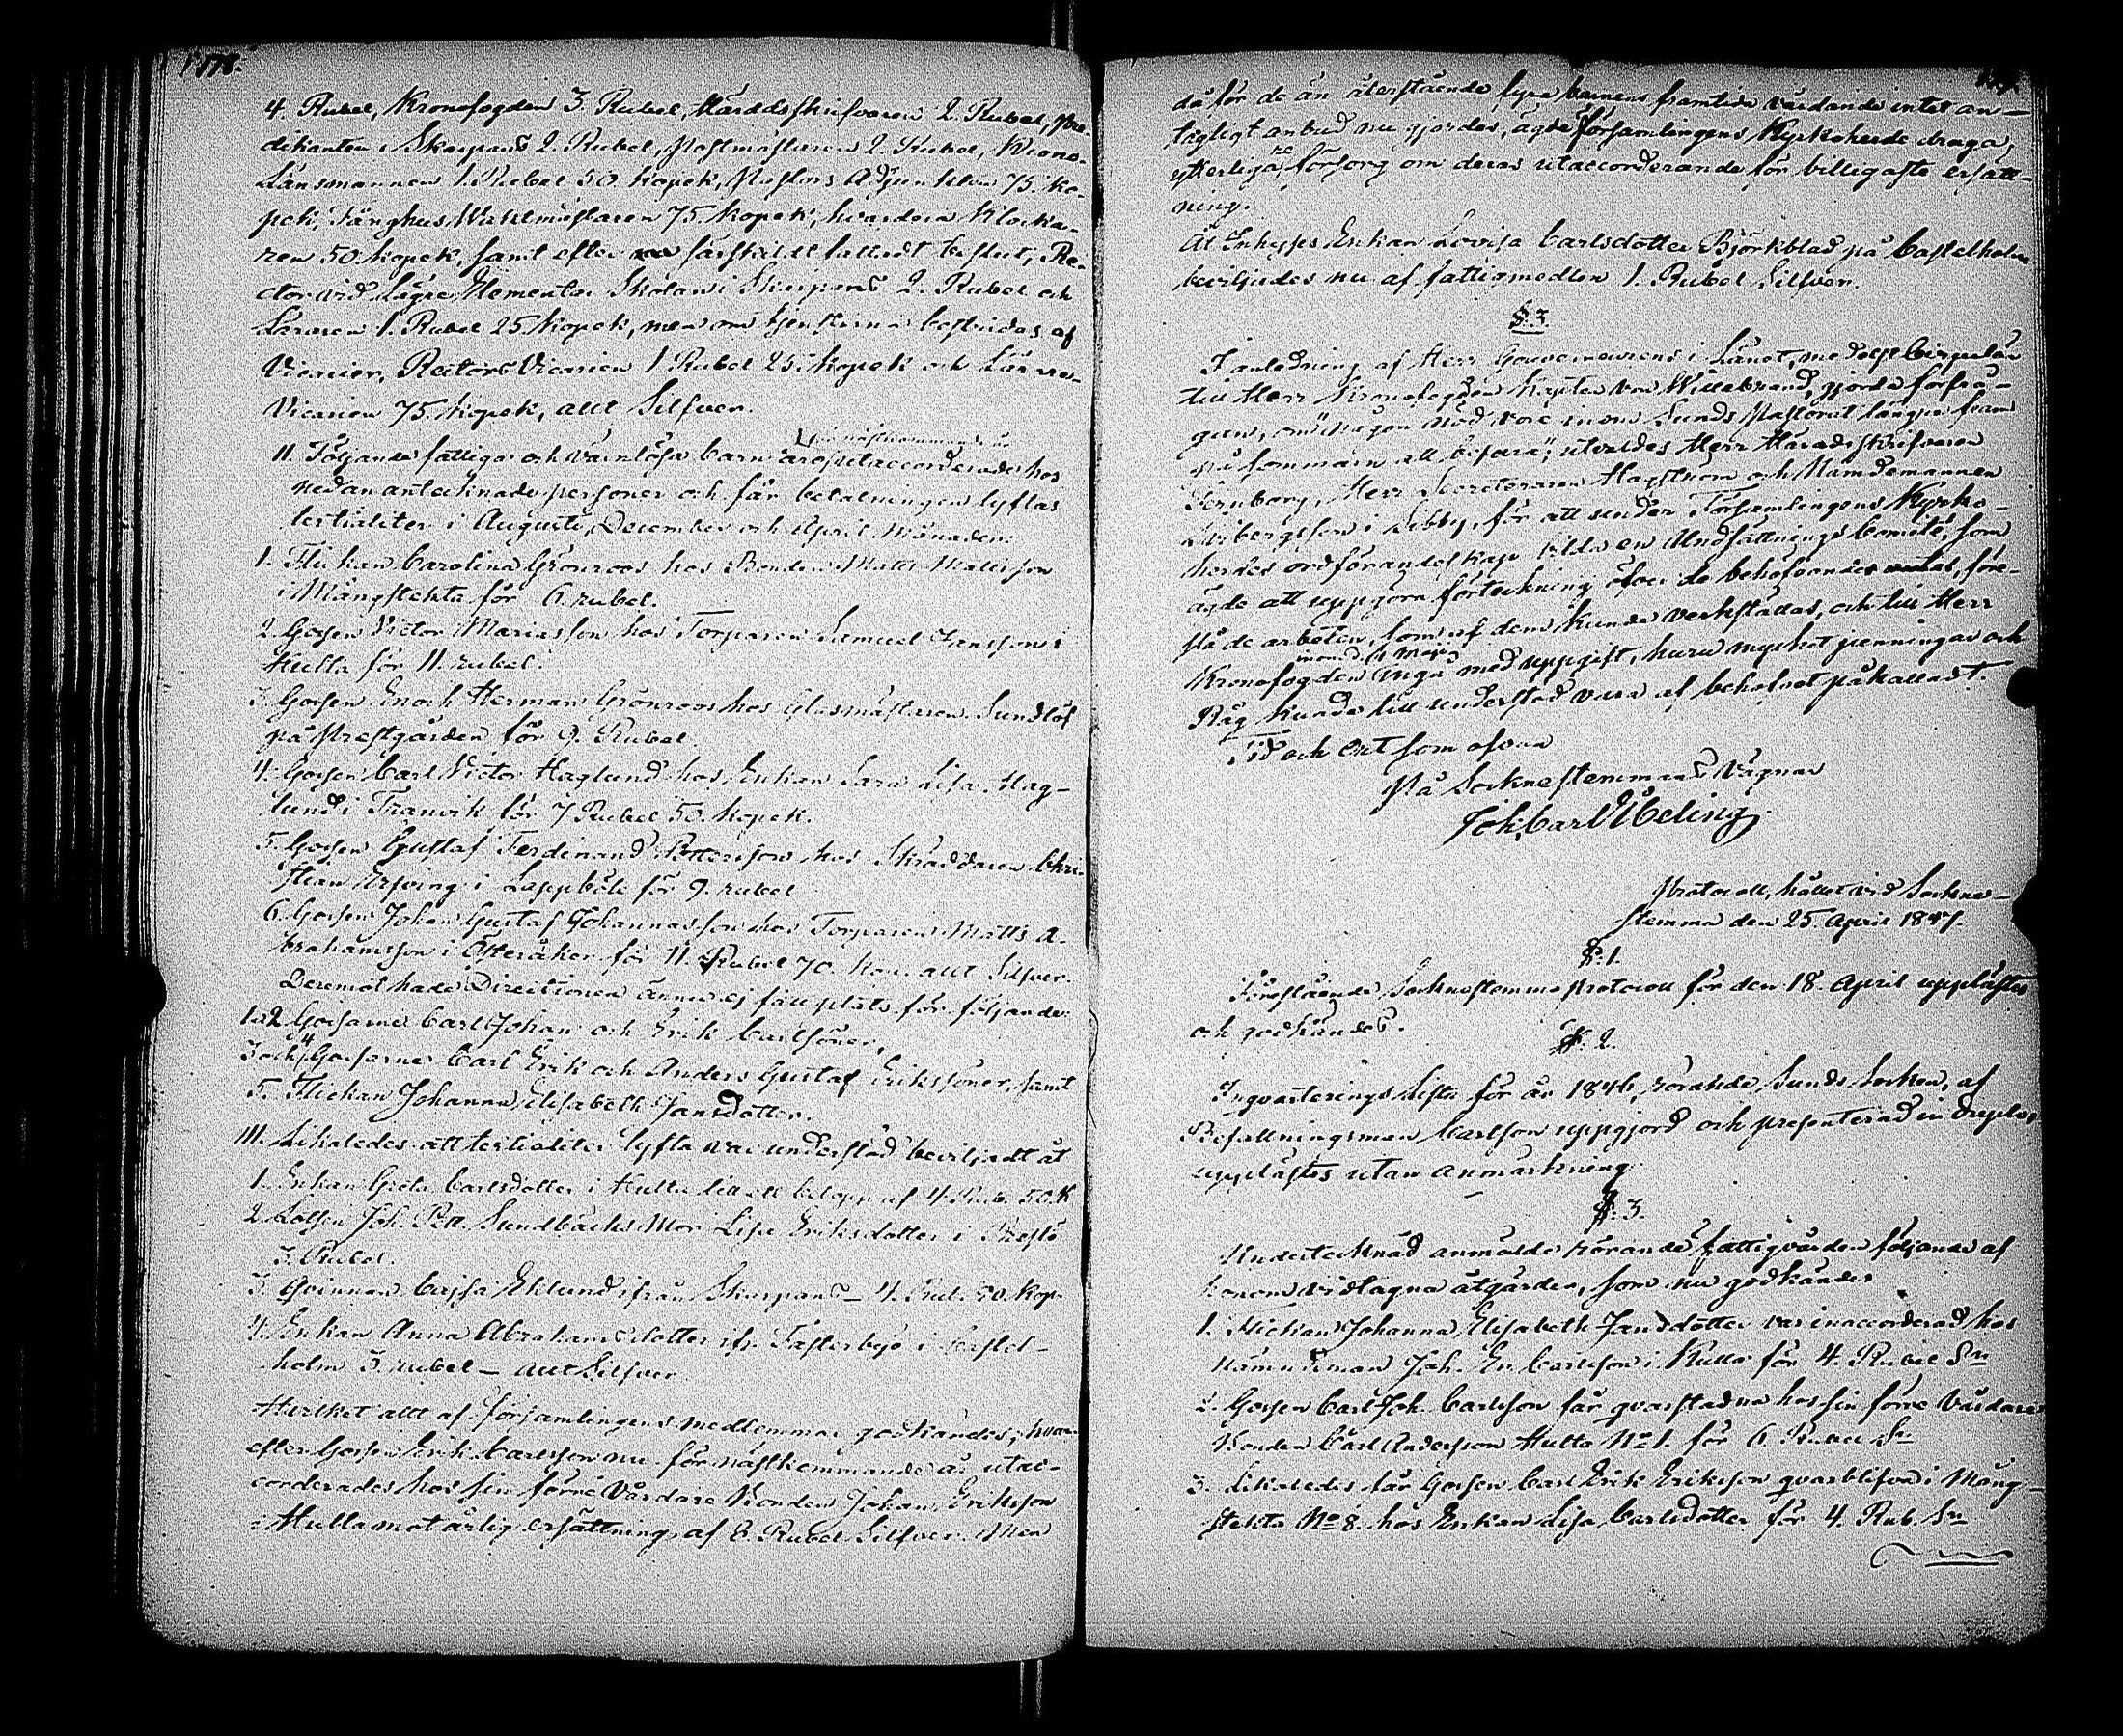 178.
4. Rubel, Kronofogden 3. Rubel, Häradsskrifvaren 2. Rubel, Pre-
dikanten i Skarpans 2. Rubel, Postmästaren 2. Rubel, Krono-
Länsmannen 1. Rubel 50. kopek, Pastors Adjunkten 75. ko-
pek, Fånghus Vaktmästaren 75. kopek, hvardera Klocka-
ren 50. kopek, samt efter särskildt fattadt beslut, Re-
ctor vid Lägre Elementar Skolan i Skarpans 2. Rubel och
Läraren 1. Rubel 25. kopek, men om tjensterna bestridas af
Vicarier, Rectors Vicarien 1 Rubel 25. kopek och Lärare
Vicarien 75. kopek, allt Silfver.
för nästkommande år
II. Följande fattiga och värnlösa barn äro utaccorderade hos
nedanantecknade personer och får betalningen lyftas
tertialiter i Augusti, December och April Månader:
1. Flickan Carolina Grönroos hos Bonden Matts Mattsson
i Mångstekta för 6. rubel.
2. Gossen Victor Mariasson hos Torparen Samuel Jansson i
Hulta för 11. rubel.
3. Gossen Enoch Herman Grönroos hos Glasmästaren Sundlöf
på Prestgården för 9. Rubel.
4. Gossen Carl Victor Haglund hos Enkan Sara Lisa Hag-
lund i Tranvik för 7 Rubel 50. kopek.
5. Gossen Gustaf Ferdinand Pettersson hos Skräddaren Chri-
stian Arfving i Lappböle för 9. rubel
6. Gossen Johan Gustaf Johannasson hos Torparen Matts A-
brahamsson i Österåker för 11. Rubel 70. kop. allt Silfver.
Deremot hade Directionen ännu ej fått plats för följande:
1 o. 2 Gossarne Carl Johan och Erik Carlsöner,
3 och 4 Gossarne Carl Erik och Anders Gustaf Erikssöner, samt
5. Flickan Johanna Elisabeth Jansdotter.
III. Likaledes att tertialiter lyfta var understöd beviljadt åt
1. Enkan Greta Carlsdotter i Hulta till ett belopp af 4. Rub. 50. K
2. Lotsen Joh. Pett. Sundbäcks Mor Lisa Eriksdotter i Prestö
3. Rubel.
3. Qvinnan Cajsa Eklund ifrån Skarpans - 4. Rub. 50. Kop.
4. Enkan Anna Abrahamsdotter ifr. Fasterby i Castel-
holm 3. rubel - allt Silfver
Hvilket allt af församlingens medlemmar godkändes, hvar-
efter Gossen Erik Carlsson nu för nästkommande år utac-
corderades hos sin förre Vårdare Bonden Johan Eriksson
i Hulta mot årlig ersättning af 8. Rubel Silfver. Men
då för de än återstående fyra barnens framtida vårdande intet an-
tagligt anbud nu gjordes, ägde församlingens Kyrkoherde draga
ytterligare försorg om deras utaccorderande för billigaste ersätt-
ning.
Åt Inhyses Enkan Lovisa Carlsdotter Björkblad på Castelholm
beviljades nu af fattigmedlen 1. Rubel Silfver.
§. 3.
I anledning af Herr Gouverneurens i Länet, medelst Cirqulär
till Herr Kronofogden Kapten von Willebrand, gjorda förfrå-
gan, "om någon nöd vore inom Sunds Pastorat längre fram
på sommarn att befara", utvaldes Herr Häradsskrifvaren
Fernborg, Herr Secreteraren Hagström och Nämndemannen
Wibergsson i Sibby, för att under Församlingens Kyrko-
herdes ordförandeskap bilda en Undsättnings Comité, som
ägde att uppgöra förteckning öfver de behöfvandes antal, före-
slå de arbeten, som af dem kunde verkställas, och till Herr
inom d. 1 Maji
Kronofogden ingå med uppgift, huru mycket penningar och
Råg kunde till understöd vara af behofvet påkalladt.
Tid och Ort som ofvan
På Sockne stemmans Vägnar
Joh. Carl Ubeling
Protocoll, hållet vid Sockne-
stemma den 25. April 1847.
§. 1.
Föreståënde Sockne stemmo protocoll för den 18. April upplästes
och godkändes.
§. 2.
Inqvarterings Lista för år 1846, rörande Sunds Socken, af
Befallningsman Carlsson uppgjord och presenterad in duplo,
upplästes utan anmärkning.
§. 3.
Undertecknad anmälde rörande fattigvården följande af
honom vidtagna åtgärder, som nu godkändes
1. Flickan Johanna Elisabeth Jansdotter var inaccorderad hos
Nämndeman Joh. Er. Carlsson i Kulla för 4. Rubel Sr
2. Gossen Carl Joh. Carlsson får qvarstadna hos sin förre Vårdare
Bonden Carl Andersson Hulta No 1. för 6. Rubel Sr
3. Likaledes får Gossen Carl Erik Eriksson qvarblifva i Mång-
stekta No 8. hos Enkan Lisa Carlsdotter för 4. Rub. Sr